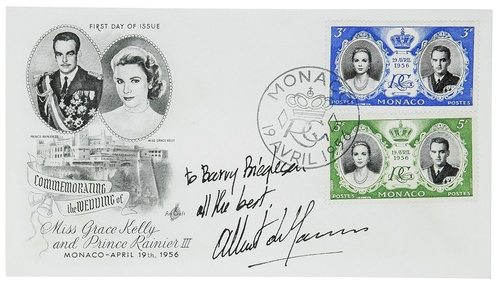 FIRST DAY OF ISSUE
PRINCE RAINIER
MISS GRACE KELLY
COMMEMORATING
the WEDDING of
Miss Grace Kelly
and Prince Rainier III
MONACO-APRIL 19TH, 1956
Art Craft
MONACO
19 AVRIL 1956
3F 3F
19 AVRIL
1956
POSTES MONACO POSTES
5F 5F
19 AVRIL
1956
POSTES MONACO POSTES
to Barry
all the best,
Albert de